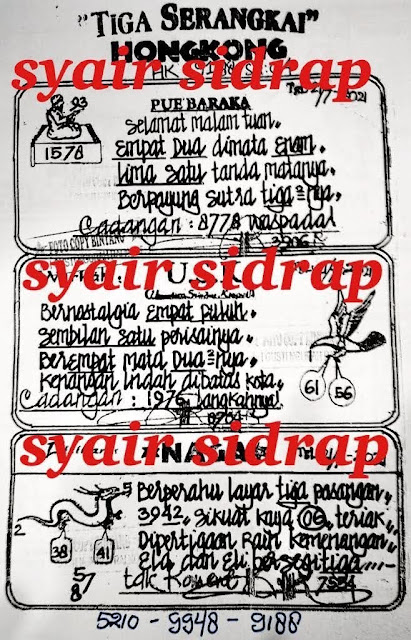 "TIGA SERANGKAI"
HONGKONG
syair sidrap
PUE BARAKA
93
1578
Selamat malam tuan.
Empat Dua dimata Enam.
Lima Satu tanda matanya.
Berpayung sutra tiga² nya.
Cadangan : 8778 waspada!
syair sidrap
Bernostalgia Empat puluh.
Sembilan Satu perisainya
Berempat mata Dua² nya
Kenangan Indah dibatas kota
Cadangan : 1976 Langkahnya!
61
56
syair sidrap
NAGA
5
2
38
41
57
8
Berperahu layar tiga pasangan
3942. Sikuat kaya 06 teriak
Dipertigaan Raih kemenangan
Ela dan Eli persegitiga....
7554
5210 - 9948 - 9188